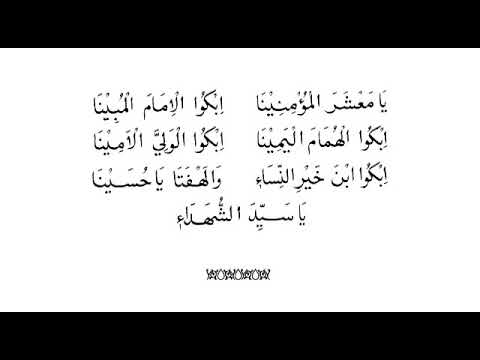 يَا مَعْشَرَ الْمُؤْمِنِيْنَا اِبْكُوا الْاِمَامَ الْمُبِيْنَا
اِبْكُوا الْهُمَامَ الْيَمِيْنَا اِبْكُوا الْوَلِيَّ الْاَمِيْنَا
اِبْكُوا ابْنَ خَيْرِ النِّسَاءِ وَالَهْفَتَا يَا حُسَيْنَا
يَا سَيِّدَ الشُّهَدَاءِ